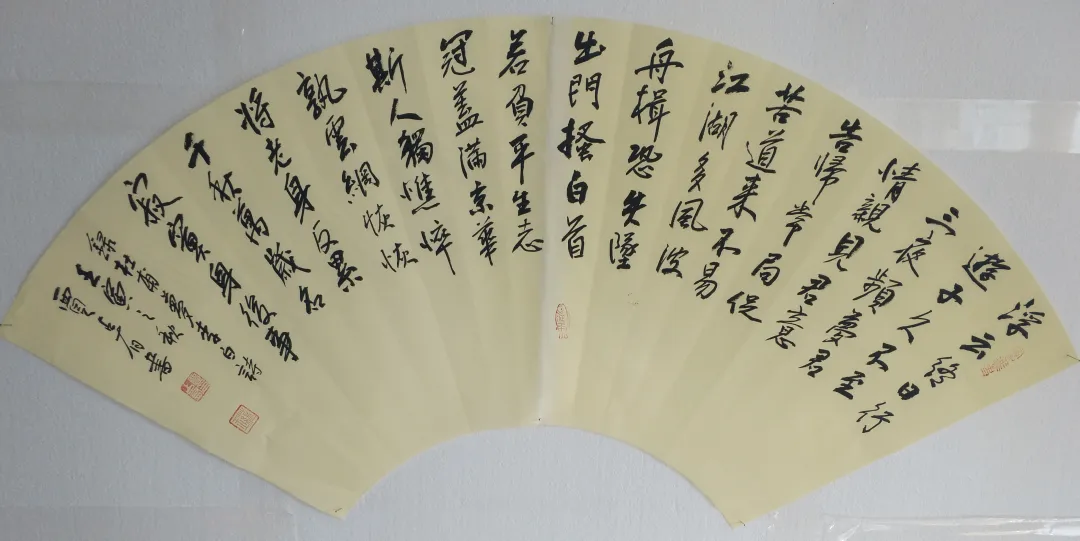 浮云終日行
遊子久不至
三夜頻夢君
情親見君意
告歸常局促
苦道来不易
江湖多風波
舟揖恐失墜
出門搔白首
若負平生志
冠蓋滿京華
斯人獨憔悴
孰雲網恢恢
将老身反累
千秋萬歲名
寂寞身後事
錄杜甫夢李白詩
壬寅之秋
書